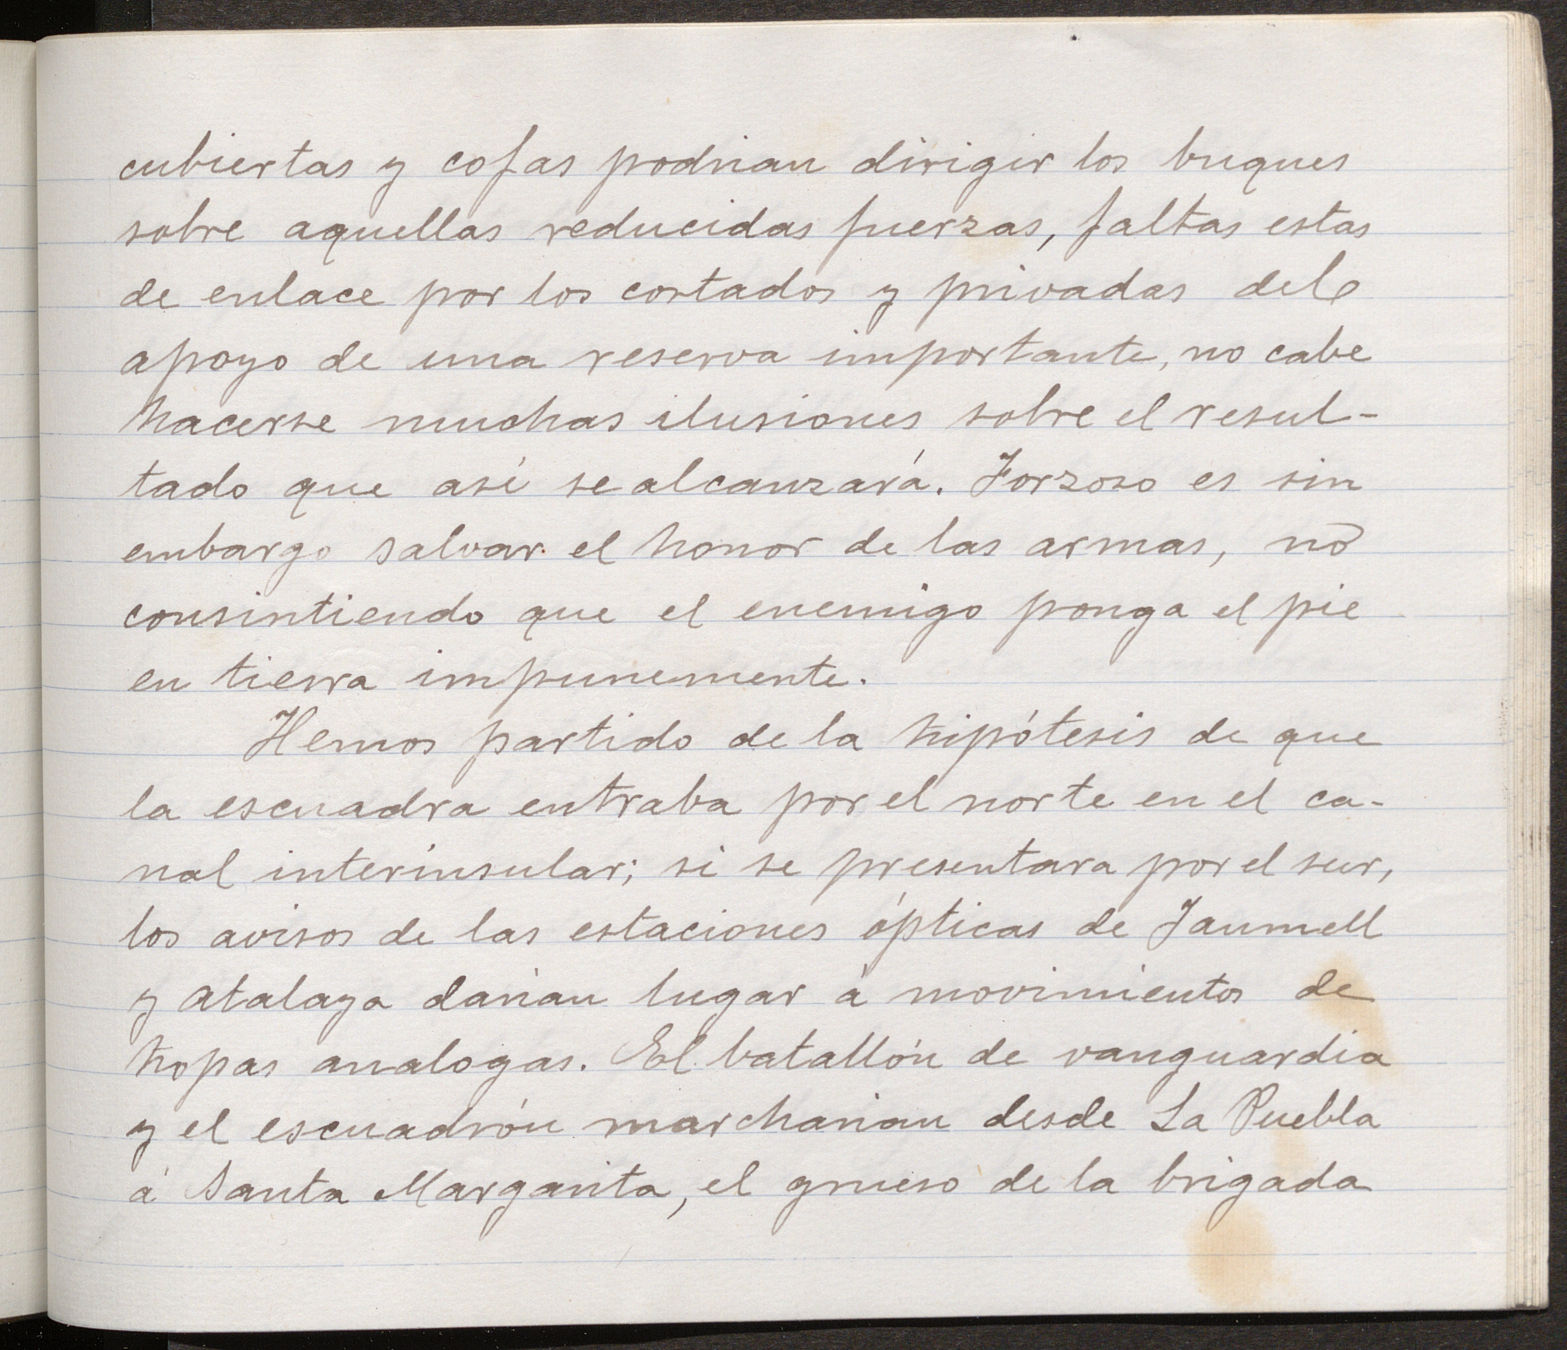 cubiertas y cofas podrian dirigir los buques
sobre aquellas reducidas fuerzas, faltas estas
de enlace por los cortados y privadas del
apoyo de una reserva importante, no cabe
hacerse muchas ilusiones sobre el resul-
tado que así se alcanzará. Forzoso es sin
embargo salvar el honor de las armas, no
consintiendo que el enemigo ponga el pie
en tierra impunemente.
Hemos partido de la hipótesis de que
la escuadra entraba por el norte en el ca-
nal interinsular; si se presentara por el sur,
los avisos de las estaciones ópticas de Jaumell
y atalaya darian lugar á movimientos de
tropas analogas. El batallón de vanguardia
y el escuadrón marcharian desde La Puebla
á Santa Margarita, el grueso de la brigada